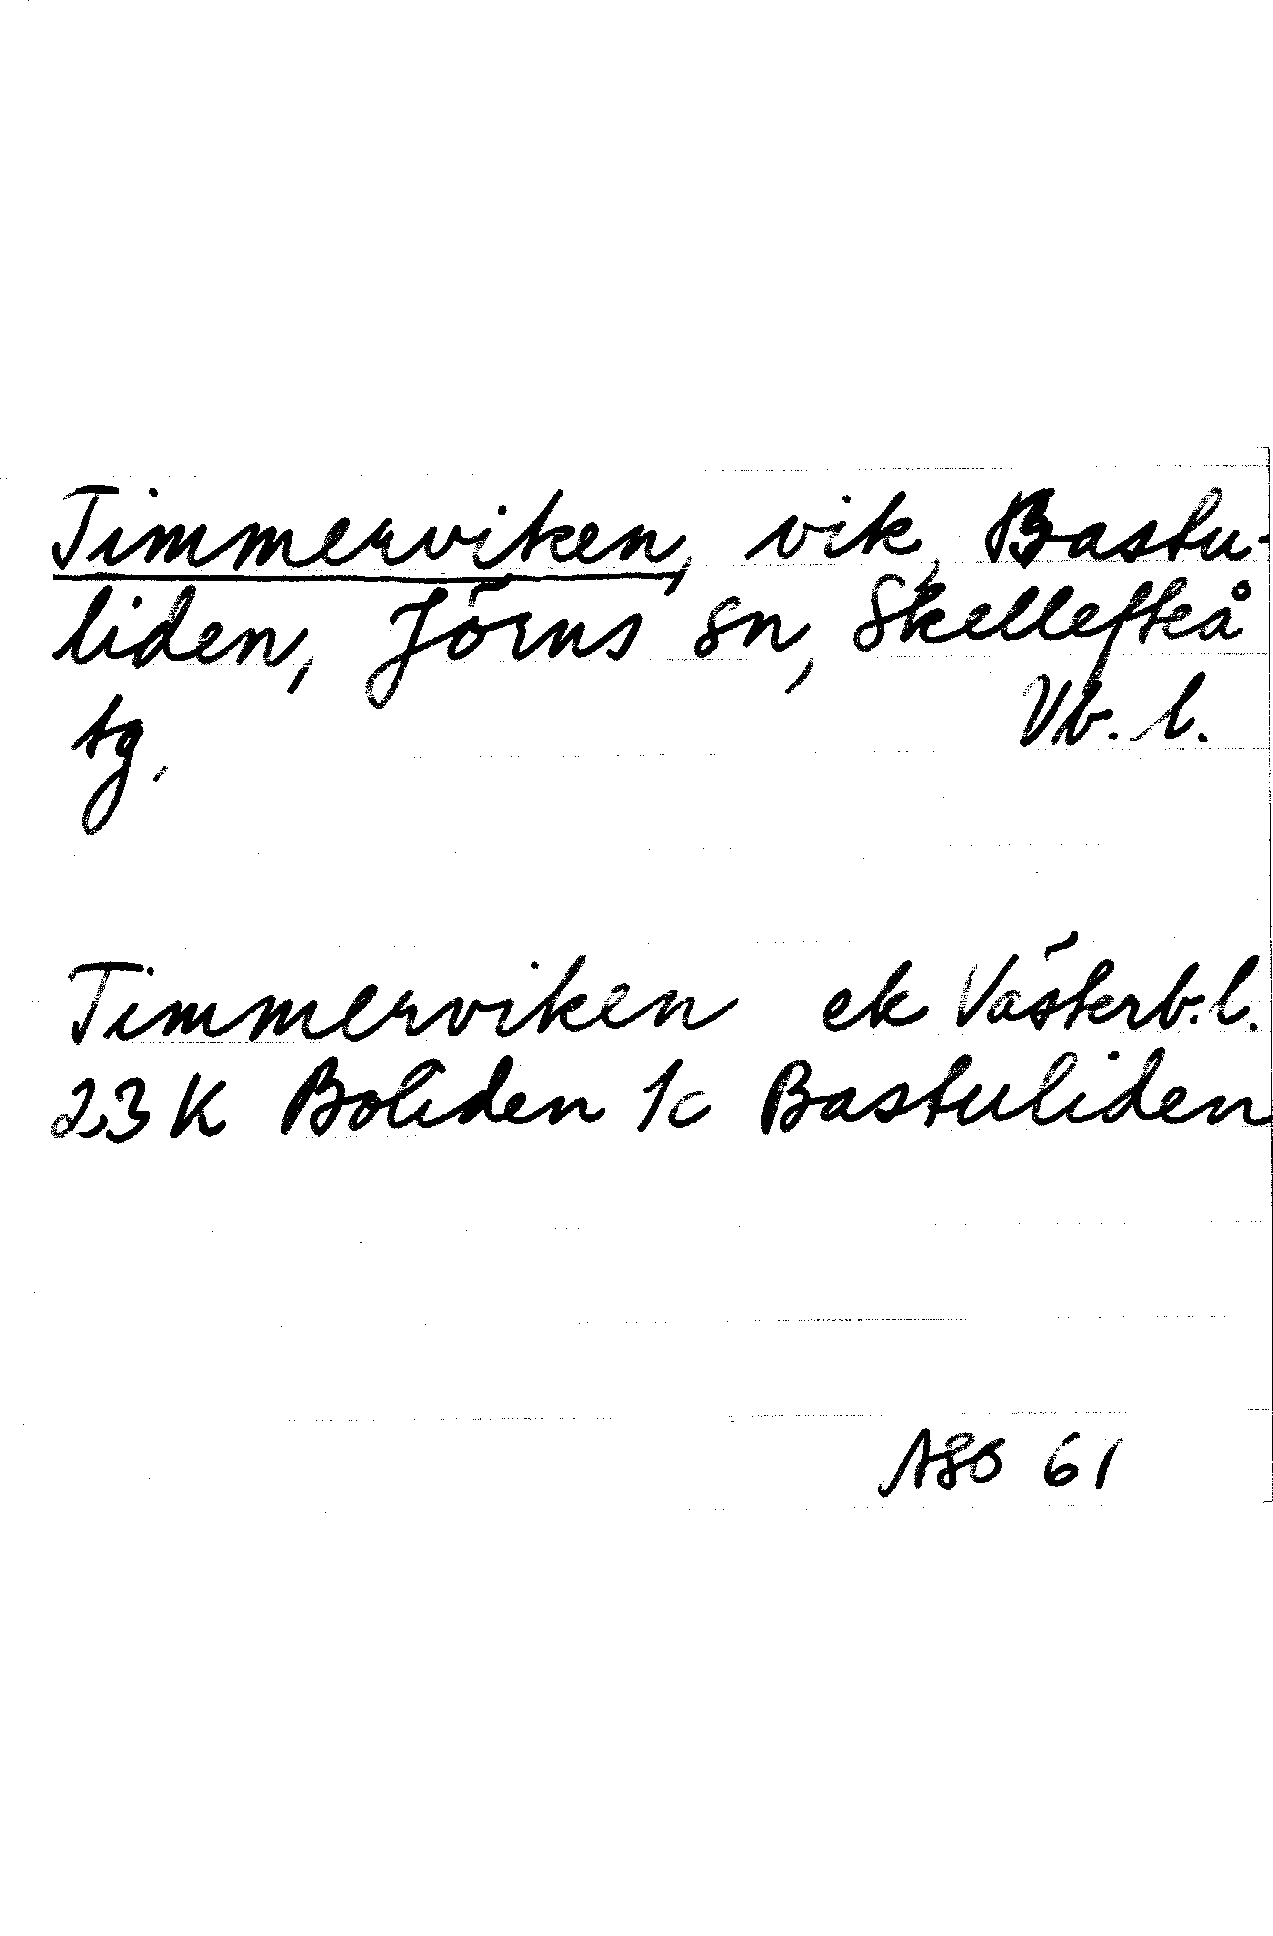 Timmerviken, vik, Bastu-
liden, Jörns sn, Skellefteå
tg. Vb. l.
Timmerviken ek Västerb:l.
23 K Boliden 1c Bastuliden
ASB 61